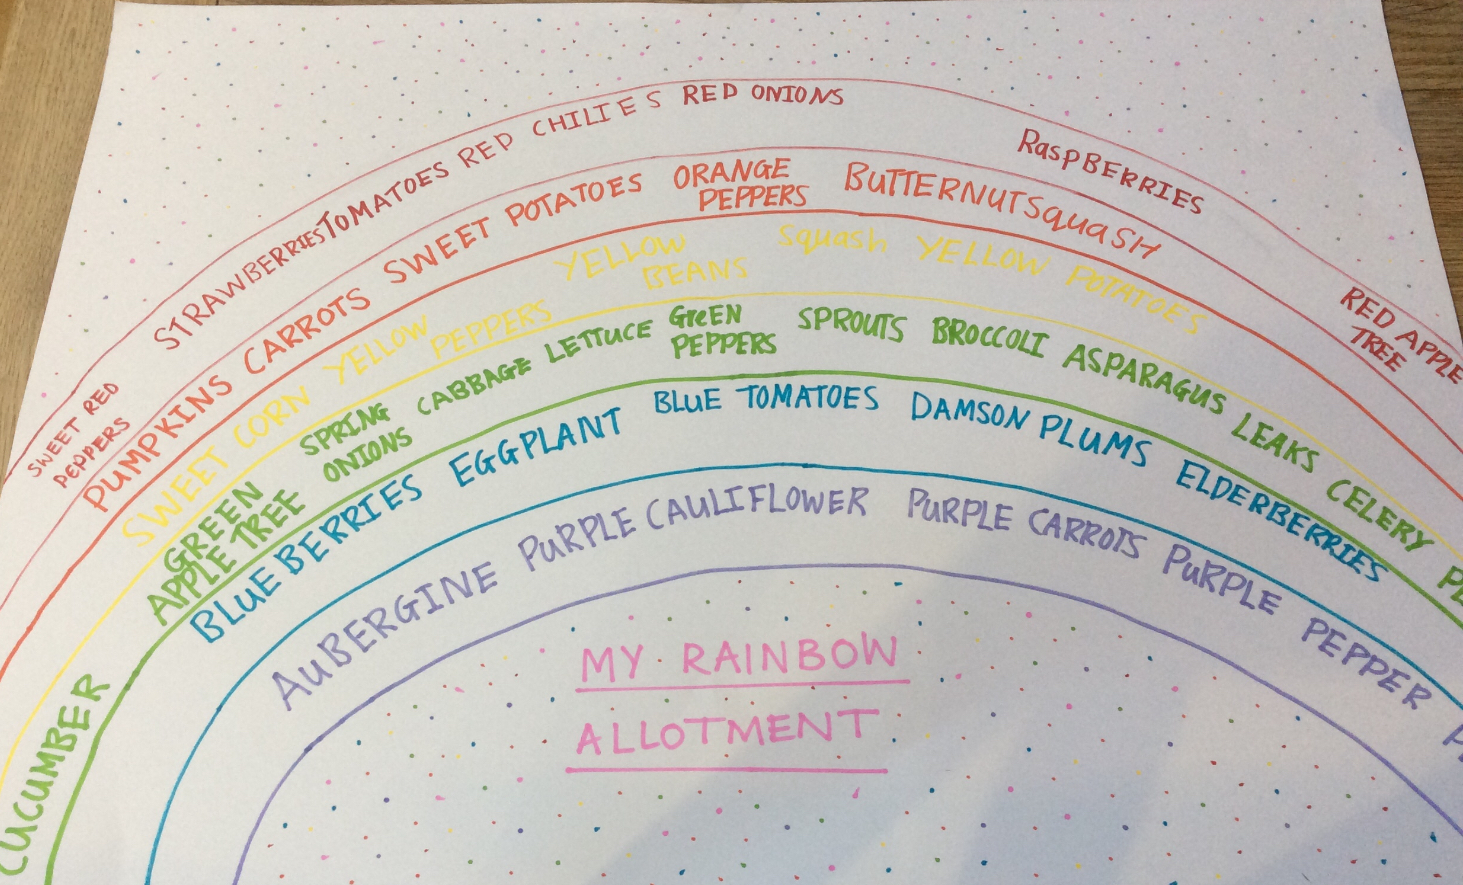 SWEET RED
PEPPERS
STRAWBERRIES TOMATOES RED CHILIES RED ONIONS RaspBERRIES
RED APPLE
TREE
PUMPKINS CARROTS SWEET POTATOES
ORANGE
PEPPERS
BUTTERNUT SquaSH
SWEET CORN
YELLOW
PEPPERS
YELLOW
BEANS
Squash YELLOW POTATOES
CUCUMBER
GREEN
APPLE TREE
SPRING
ONIONS
CABBAGE LETTUCE
GReEN
PEPPERS
SPROUTS BROCCOLI ASPARAGUS LEAKS CELERY
BLUEBERRIES EGGPLANT BLUE TOMATOES DAMSON PLUMS ELDERBERRIES
AUBERGINE PURPLE CAULIFLOWER PURPLE CARROTS PURPLE PEPPER
MY RAINBOW
ALLOTMENT